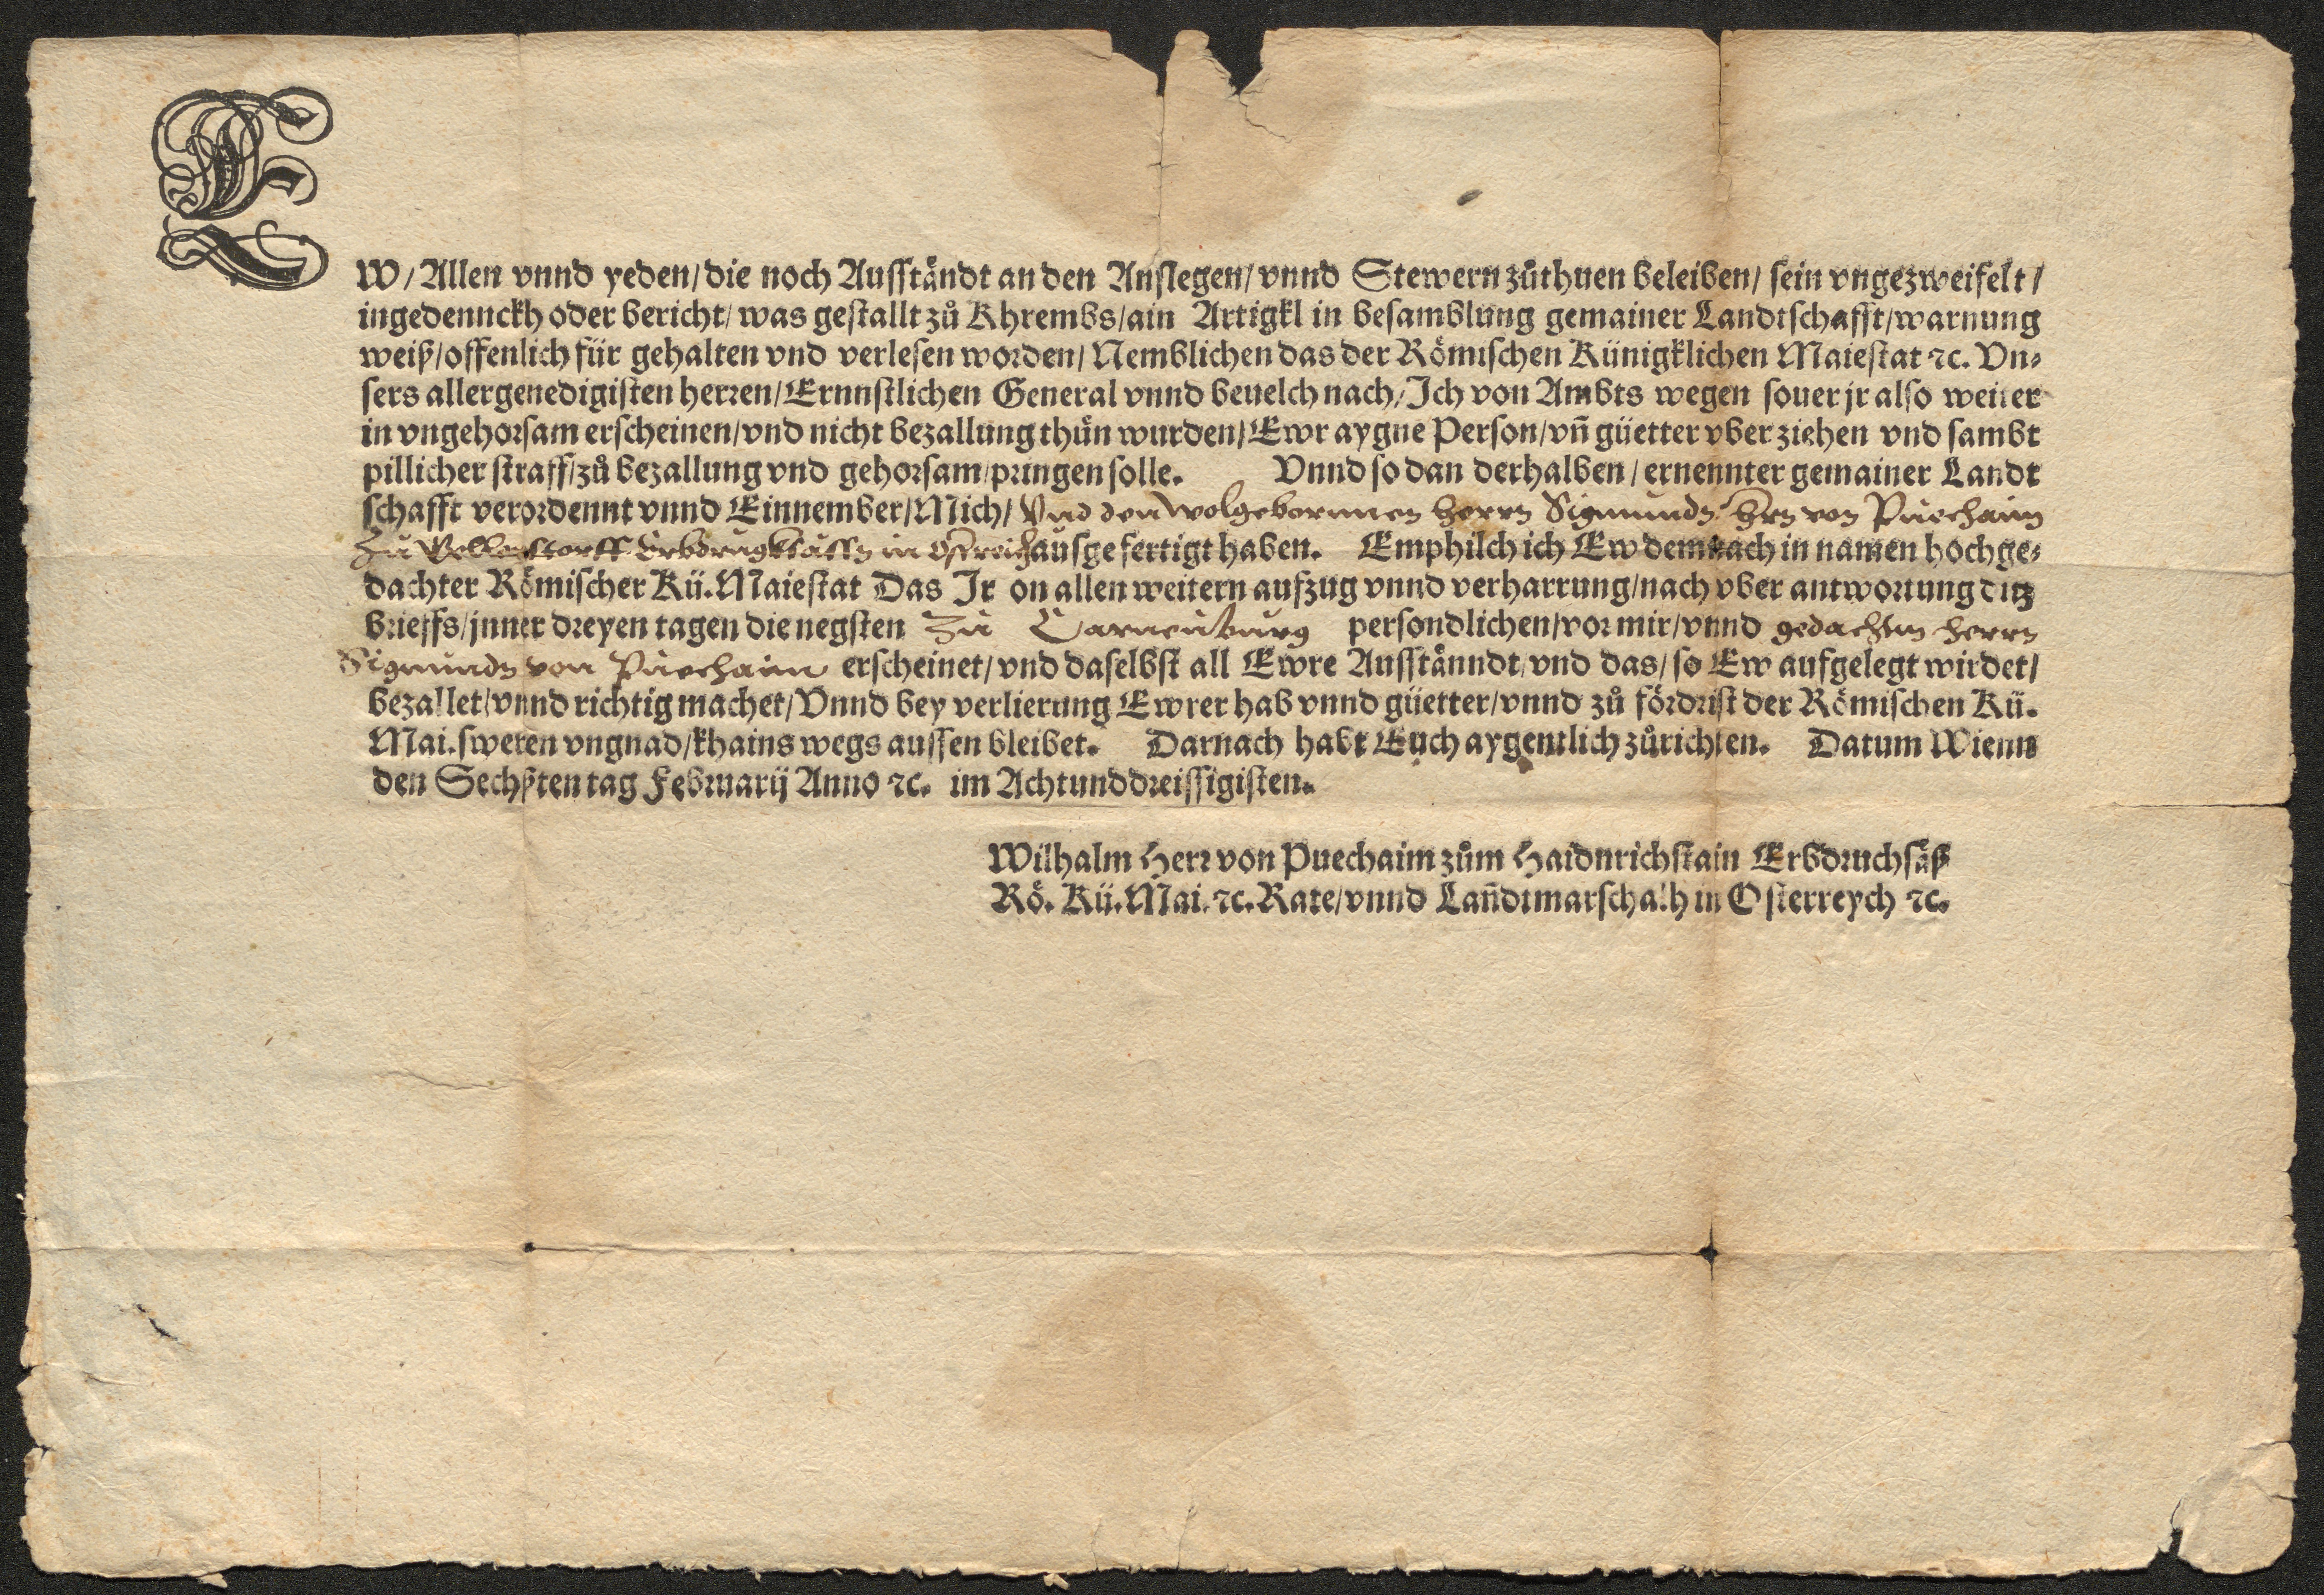 EW/ Allen vnnd yeden/ die noch Ausständt an den Anslegen/ vnnd Stewern zůthuen beleiben/ sein vngezweifelt/
ingedennckh oder bericht/ was gestallt zů Khrembs/ ain Artigkl in besamblung gemainer Landtschafft/ warnung
weiß/ offenlich für gehalten vnd verlesen worden/ Nemblichen das der Römischen Künigklichen Maiestat ꝛc. Vn⸗
sers allergenedigisten herren/ Ernnstlichen General vnnd beuelch nach/ Ich von Ambts wegen souer jr also weiter
in vngehorsam erscheinen/ vnd nicht bezallung thün wurden/ Ewr aygne Person/ vñ güetter vber ziehen vnd sambt
pillicher straff/ zů bezallung vnd gehorsam/ pringen solle. Vnnd so dan derhalben/ ernennter gemainer Landt
schafft verordennt vnnd Einnember/ Mich/ Vnd den wolgebornnen herrn Sigmundn Hrn von Puechaim
Zu Erbdrugksässn in Osstreich ausgefertigt haben. Emphilch ich Ew demnach in namen hochge⸗
dachter Römischer Kü. Maiestat Das Ir on allen weitern aufzug vnnd verharrung/ nach vber antworttung ditz
brieffs/ jnner dreyen tagen die negsten Zu Carneuburg persondlichen/ vor mir/ vnnd gedachtn herrn
Sigmundn von Puechaim erscheinet/ vnd daselbst all Ewre Ausstänndt/ vnd das/ so Ew aufgelegt wirdet/
bezallet/ vnnd richtig machet/ Vnnd bey verlierung Ewrer hab vnnd güetter/ vnnd zů fördrist der Römischen Kü.
Mai. sweren vngnad/ khains wegs aussen bleibet. Darnach habt Euch aygentlich zůrichten. Datum Wienn
den Sechsten tag Februarij Anno ꝛc. im Achtunddreissigisten.
Wilhalm Herr von Puechaim zům Haidnrichstain Erbdruchsäß
Rö. Kü. Mai. ꝛc. Rate/ vnnd Lañdtmarschalh in Osterreych ꝛc.